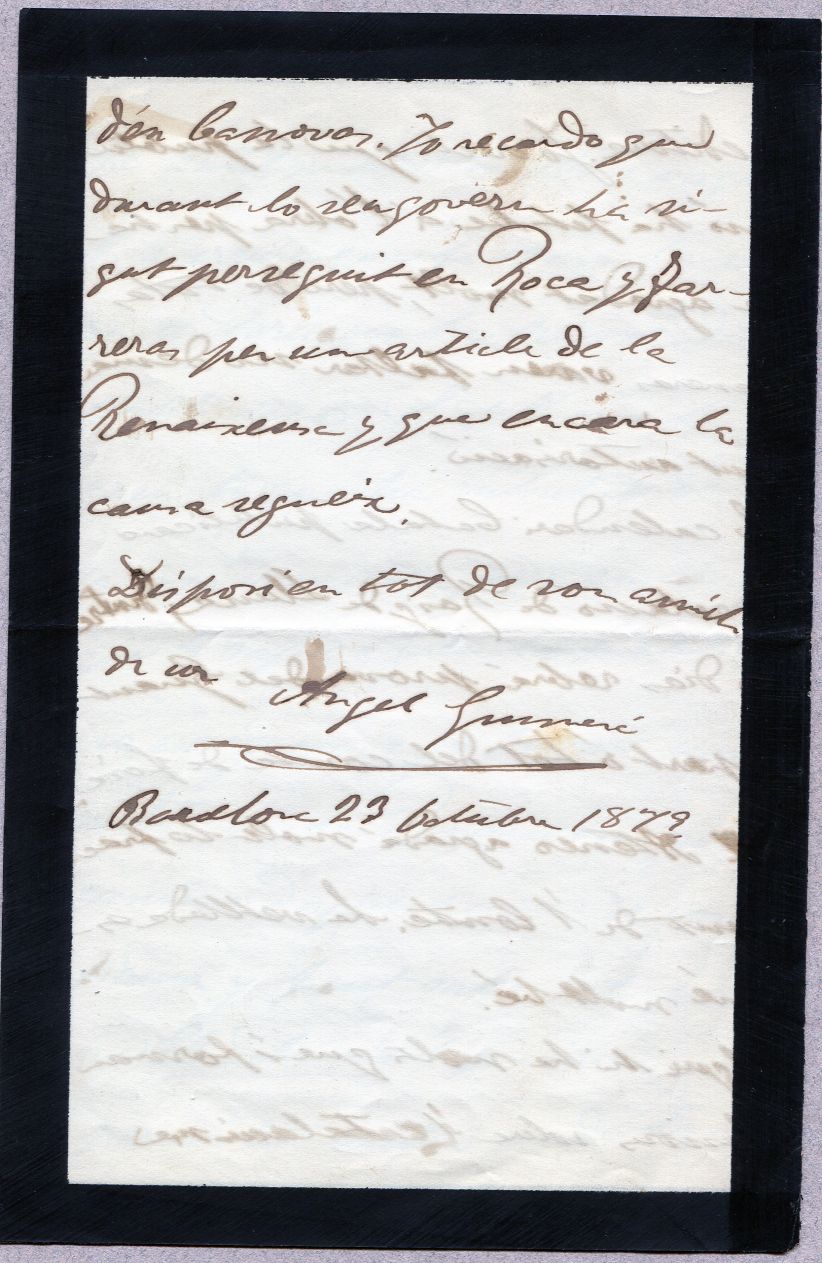 d'én Casnovas. Jo recordo que
durant lo seu govern ha si-
gut perseguit en Roca y Far-
reras per un article de la
Renaixensa y que encara la
causa segueix.
Disposi en tot de son amich
de cor
Angel Guimerá
Barcelona 23 Octubre 1879